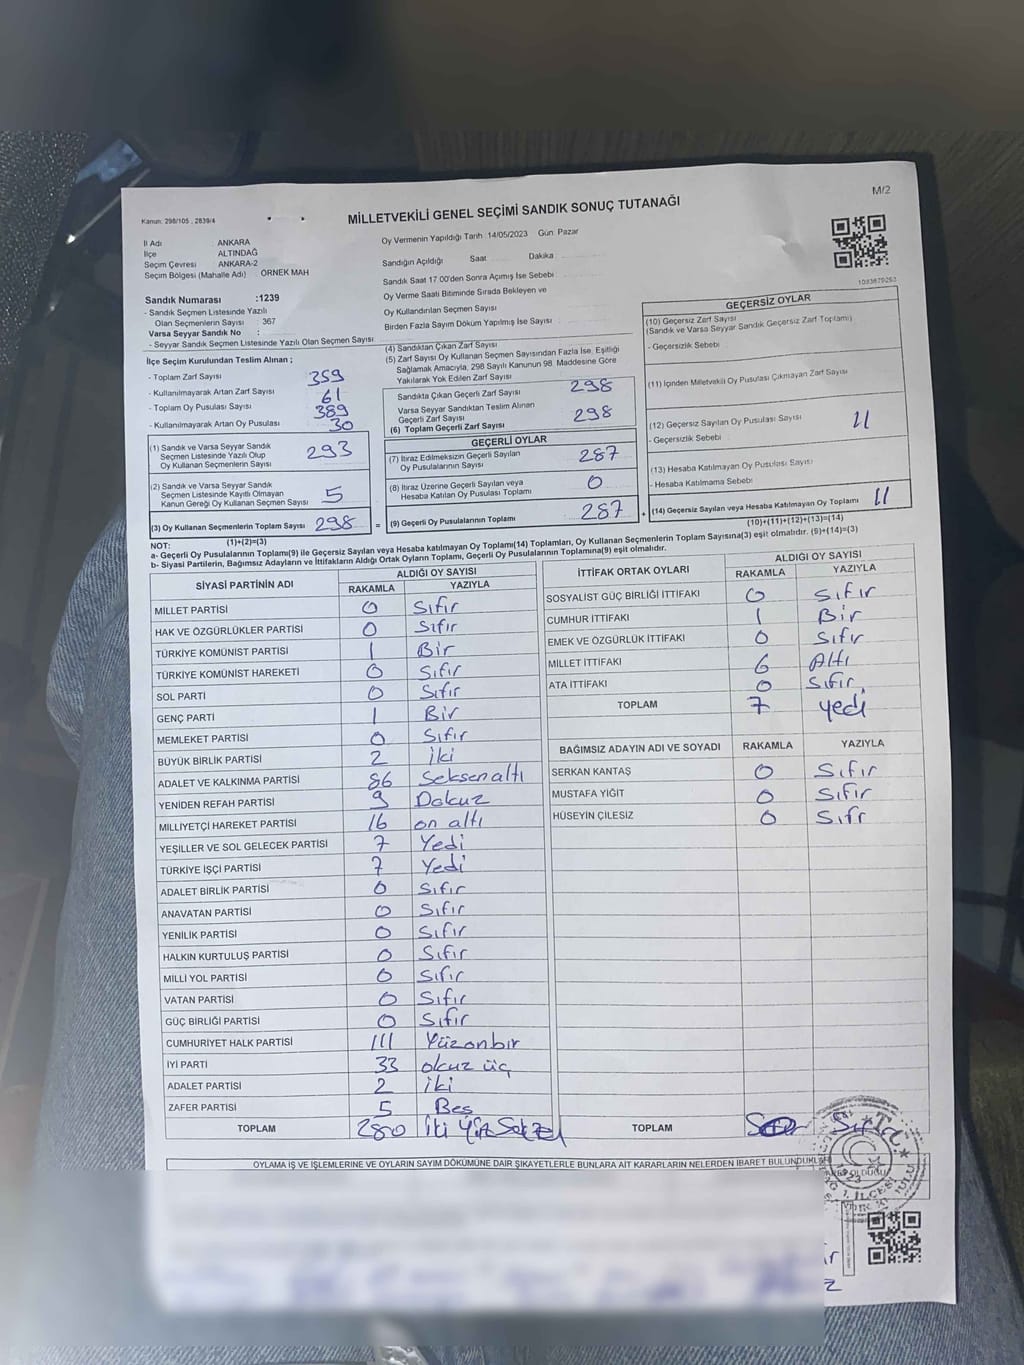 M/2
Kanun: 298/105 , 2839/4
MİLLETVEKİLİ GENEL SEÇİMİ SANDIK SONUÇ TUTANAĞI
İl Adı : ANKARA
İlçe : ALTINDAĞ
Seçim Çevresi : ANKARA-2
Seçim Bölgesi (Mahalle Adı) : ÖRNEK MAH
Sandık Numarası :1239
- Sandık Seçmen Listesinde Yazılı
Olan Seçmenlerin Sayısı : 367
Varsa Seyyar Sandık No :
- Seyyar Sandık Seçmen Listesinde Yazılı Olan Seçmen Sayısı
Oy Vermenin Yapıldığı Tarih :14/05/2023 Gün: Pazar
Sandığın Açıldığı Saat Dakika
Sandık Saat 17.00'den Sonra Açılmış İse Sebebi
Oy Verme Saati Bitiminde Sırada Bekleyen ve
Oy Kullandırılan Seçmen Sayısı
Birden Fazla Sayım Döküm Yapılmış İse Sayısı
İlçe Seçim Kurulundan Teslim Alınan ;
- Toplam Zarf Sayısı 359
- Kullanılmayarak Artan Zarf Sayısı 61
- Toplam Oy Pusulası Sayısı 389
- Kullanılmayarak Artan Oy Pusulası 30
(1) Sandık ve Varsa Seyyar Sandık
Seçmen Listesinde Yazılı Olup
Oy Kullanan Seçmenlerin Sayısı 293
(2) Sandık ve Varsa Seyyar Sandık
Seçmen Listesinde Kayıtlı Olmayan
Kanun Gereği Oy Kullanan Seçmen Sayısı 5
(3) Oy Kullanan Seçmenlerin Toplam Sayısı 298 =
(1)+(2)=(3)
(4) Sandıktan Çıkan Zarf Sayısı
(5) Zarf Sayısı Oy Kullanan Seçmen Sayısından Fazla İse, Eşitliği
Sağlamak Amacıyla, 298 Sayılı Kanunun 98. Maddesine Göre
Yakılarak Yok Edilen Zarf Sayısı
Sandıkta Çıkan Geçerli Zarf Sayısı 298
Varsa Seyyar Sandıktan Teslim Alınan
Geçerli Zarf Sayısı
(6) Toplam Geçerli Zarf Sayısı 298
GEÇERLİ OYLAR
(7) İtiraz Edilmeksizin Geçerli Sayılan
Oy Pusulalarının Sayısı 287
(8) İtiraz Üzerine Geçerli Sayılan veya
Hesaba Katılan Oy Pusulası Toplamı 0
(9) Geçerli Oy Pusulalarının Toplamı 287 +
GEÇERSİZ OYLAR
(10) Geçersiz Zarf Sayısı
(Sandık ve Varsa Seyyar Sandık Geçersiz Zarf Toplamı)
- Geçersizlik Sebebi
(11) İçinden Milletvekili Oy Pusulası Çıkmayan Zarf Sayısı
(12) Geçersiz Sayılan Oy Pusulası Sayısı 11
- Geçersizlik Sebebi
(13) Hesaba Katılmayan Oy Pusulası Sayısı
- Hesaba Katılmama Sebebi
(14) Geçersiz Sayılan veya Hesaba Katılmayan Oy Toplamı 11
(10)+(11)+(12)+(13)=(14)
NOT:
a- Geçerli Oy Pusulalarının Toplamı(9) ile Geçersiz Sayılan veya Hesaba katılmayan Oy Toplamı(14) Toplamları, Oy Kullanan Seçmenlerin Toplam Sayısına(3) eşit olmalıdır. (9)+(14)=(3)
b- Siyasi Partilerin, Bağımsız Adayların ve İttifakların Aldığı Ortak Oyların Toplamı, Geçerli Oy Pusulalarının Toplamına(9) eşit olmalıdır.
SİYASİ PARTİNİN ADI ALDIĞI OY SAYISI
RAKAMLA YAZIYLA
MİLLET PARTİSİ 0 Sıfır
HAK VE ÖZGÜRLÜKLER PARTİSİ 0 Sıfır
TÜRKİYE KOMÜNİST PARTİSİ 1 Bir
TÜRKİYE KOMÜNİST HAREKETİ 0 Sıfır
SOL PARTİ 0 Sıfır
GENÇ PARTİ 1 Bir
MEMLEKET PARTİSİ 0 Sıfır
BÜYÜK BİRLİK PARTİSİ 2 iki
ADALET VE KALKINMA PARTİSİ 86 Seksen altı
YENİDEN REFAH PARTİSİ 9 Dokuz
MİLLİYETÇİ HAREKET PARTİSİ 16 on altı
YEŞİLLER VE SOL GELECEK PARTİSİ 7 Yedi
TÜRKİYE İŞÇİ PARTİSİ 7 Yedi
ADALET BİRLİK PARTİSİ 0 Sıfır
ANAVATAN PARTİSİ 0 Sıfır
YENİLİK PARTİSİ 0 Sıfır
HALKIN KURTULUŞ PARTİSİ 0 Sıfır
MİLLİ YOL PARTİSİ 0 Sıfır
VATAN PARTİSİ 0 Sıfır
GÜÇ BİRLİĞİ PARTİSİ 0 Sıfır
CUMHURİYET HALK PARTİSİ 111 Yüzonbir
İYİ PARTİ 33 otuz üç
ADALET PARTİSİ 2 iki
ZAFER PARTİSİ 5 Beş
TOPLAM 280 iki yüz Seksen
İTTİFAK ORTAK OYLARI ALDIĞI OY SAYISI
RAKAMLA YAZIYLA
SOSYALİST GÜÇ BİRLİĞİ İTTİFAKI 0 Sıfır
CUMHUR İTTİFAKI 1 Bir
EMEK VE ÖZGÜRLÜK İTTİFAKI 0 Sıfır
MİLLET İTTİFAKI 6 Altı
ATA İTTİFAKI 0 Sıfır
TOPLAM 7 yedi
BAĞIMSIZ ADAYIN ADI VE SOYADI RAKAMLA YAZIYLA
SERKAN KANTAŞ 0 Sıfır
MUSTAFA YİĞİT 0 Sıfır
HÜSEYİN ÇİLESİZ 0 Sıfr
TOPLAM Sıfır
OYLAMA İŞ VE İŞLEMLERİNE VE OYLARIN SAYIM DÖKÜMÜNE DAİR ŞİKAYETLERLE BUNLARA AİT KARARLARIN NELERDEN İBARET BULUNDUKLARI
T.C.